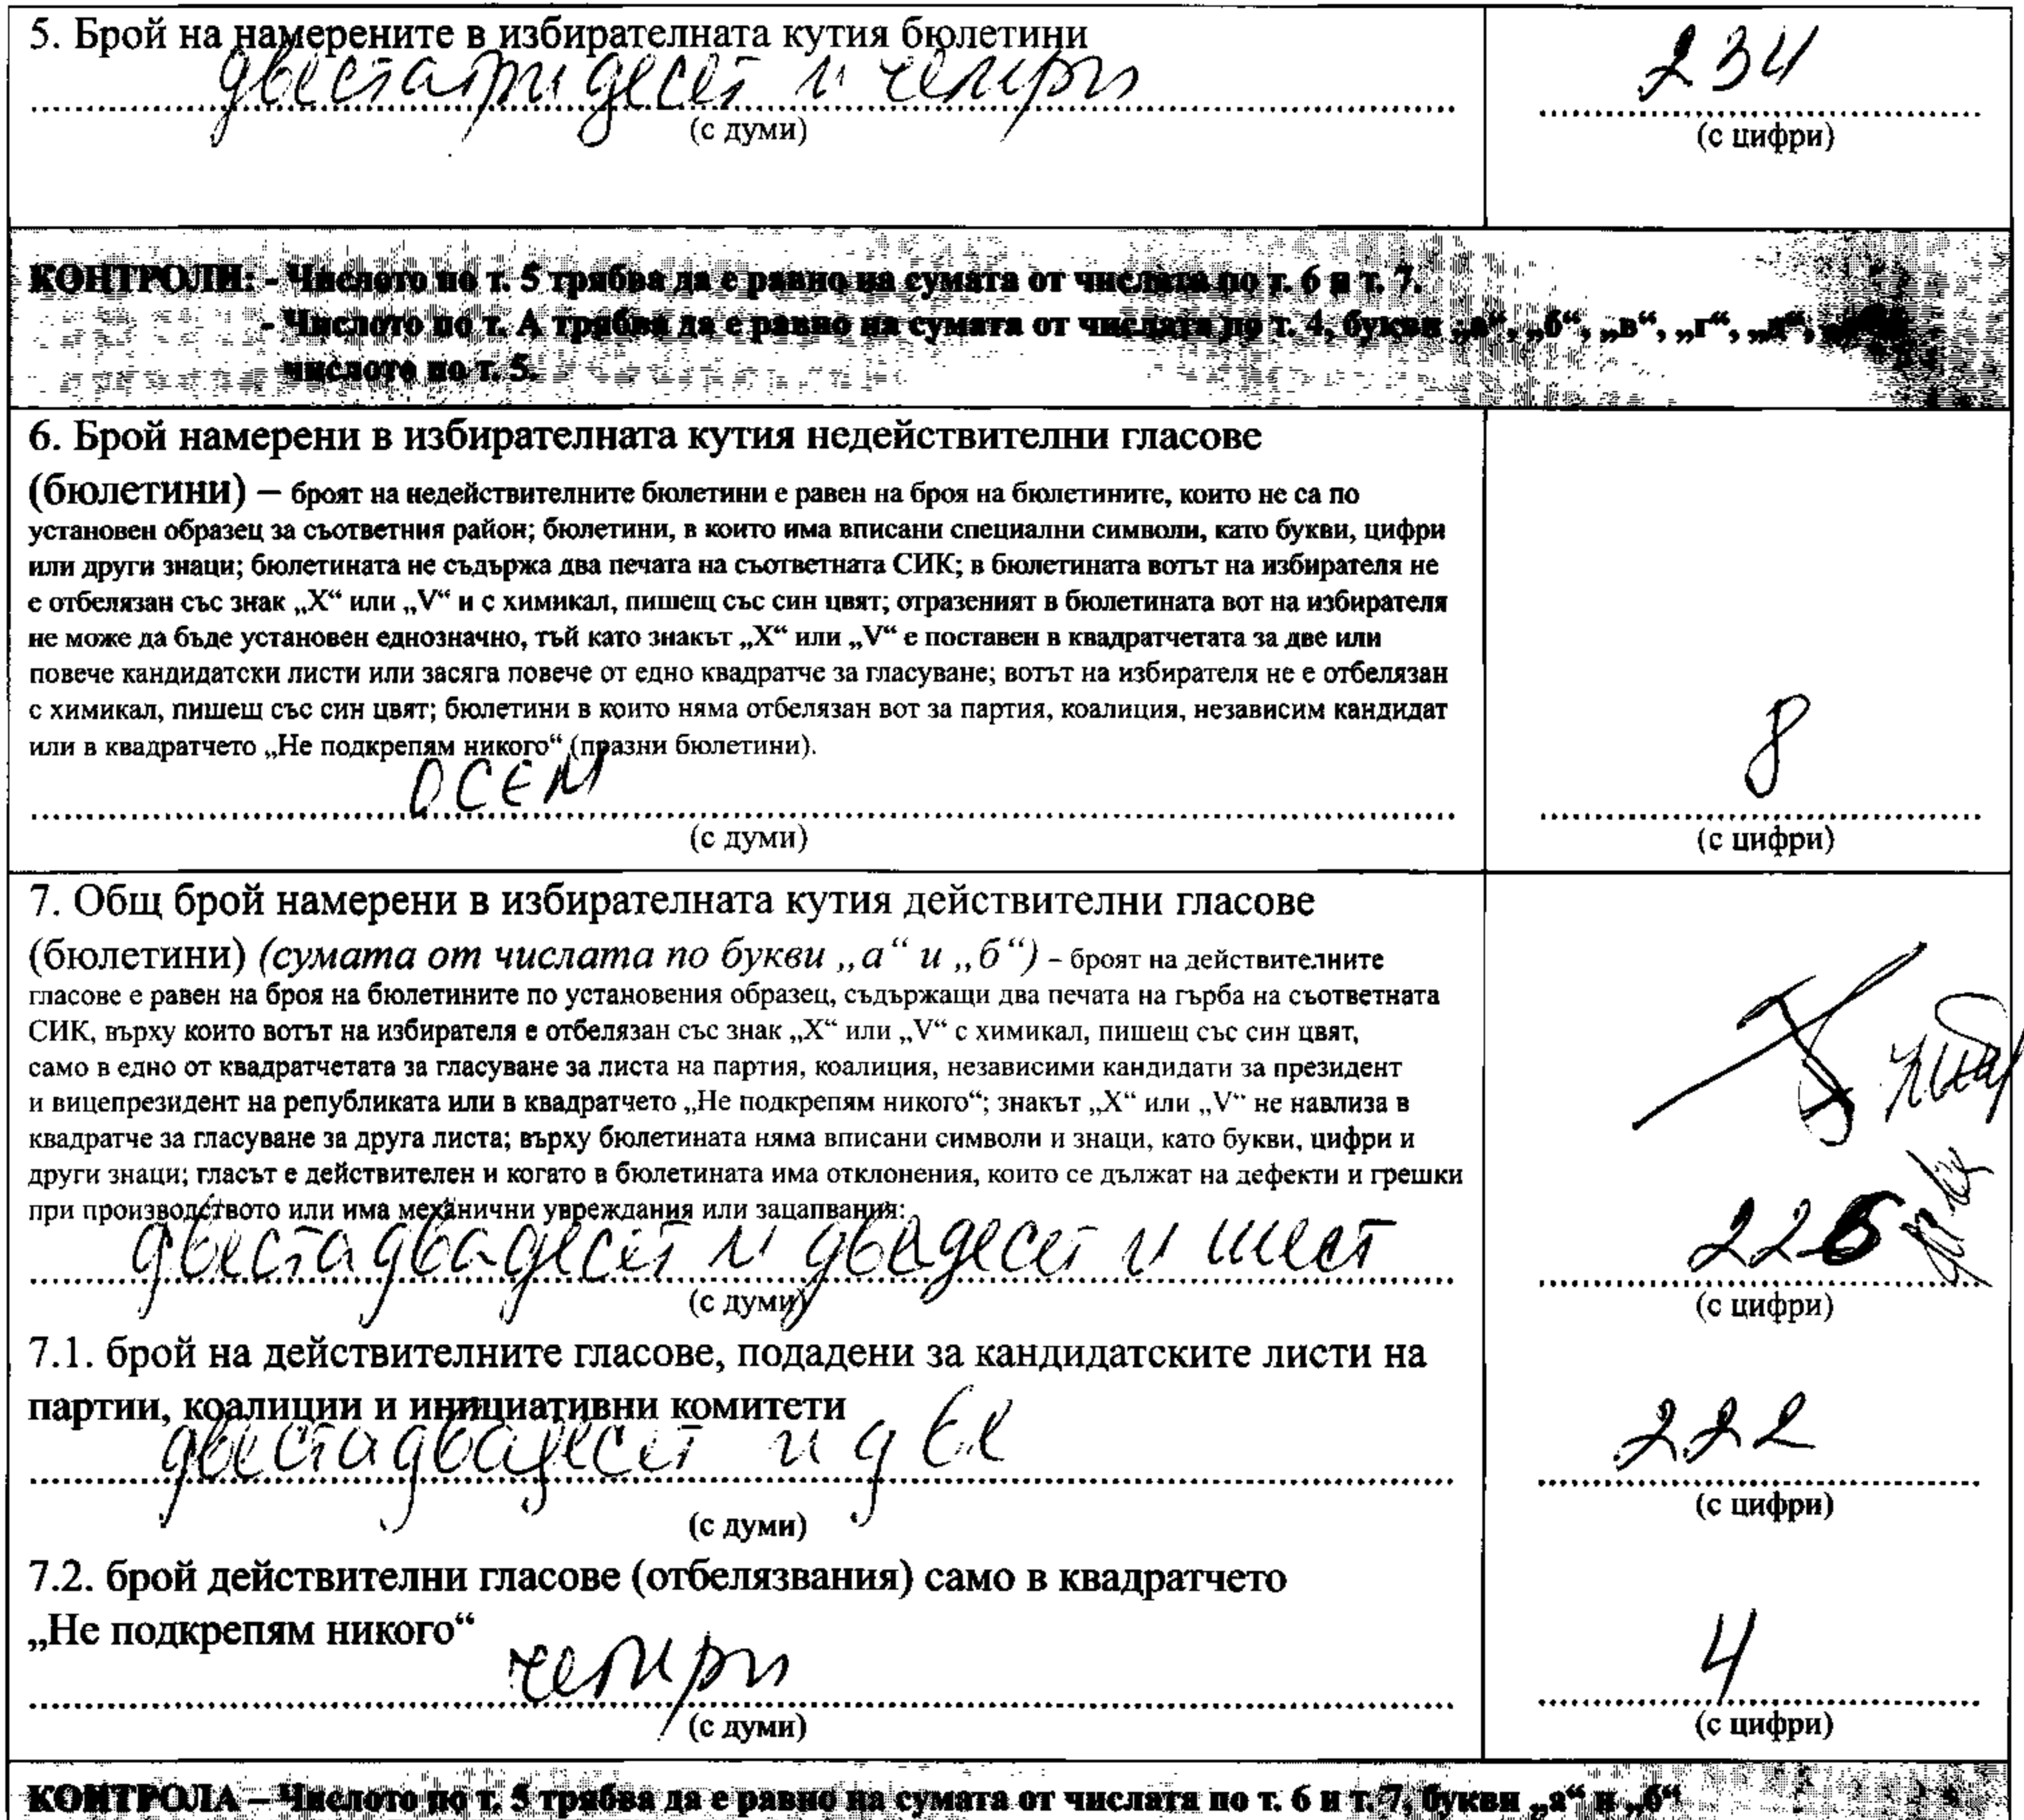 5. Брой на намерените в избирателната кутия бюлетини
двестатридесет и четири
234
(с думи)
(с цифри)
КОНТРОЛИ: - Числото по т. 5 трябва да е равно на сумата от числата по т. 6 и т. 7.
- Числото по т. А трябва да е равно на сумата от числата по т. 4, букви „а“, „б“, „в“, „г“, „д“,
числото по т. 5.
6. Брой намерени в избирателната кутия недействителни гласове
(бюлетини) – броят на недействителните бюлетини е равен на броя на бюлетините, които не са по
установен образец за съответния район; бюлетини, в които има вписани специални символи, като букви, цифри
или други знаци; бюлетината не съдържа два печата на съответната СИК; в бюлетината вотът на избирателя не
е отбелязан със знак „X“ или „V“ и с химикал, пишещ със син цвят; отразеният в бюлетината вот на избирателя
не може да бъде установен еднозначно, тъй като знакът „X“ или „V“ е поставен в квадратчетата за две или
повече кандидатски листи или засяга повече от едно квадратче за гласуване; вотът на избирателя не е отбелязан
с химикал, пишещ със син цвят; бюлетини в които няма отбелязан вот за партия, коалиция, независим кандидат
или в квадратчето „Не подкрепям никого“ (празни бюлетини).
ОСЕМ
8
(с думи)
(с цифри)
7. Общ брой намерени в избирателната кутия действителни гласове
(бюлетини) (сумата от числата по букви „а“ и „б“) – броят на действителните
гласове е равен на броя на бюлетините по установения образец, съдържащи два печата на гърба на съответната
СИК, върху които вотът на избирателя е отбелязан със знак „X“ или „V“ с химикал, пишещ със син цвят,
само в едно от квадратчетата за гласуване за листа на партия, коалиция, независими кандидати за президент
и вицепрезидент на републиката или в квадратчето „Не подкрепям никого“; знакът „X“ или „V“ не навлиза в
квадратче за гласуване за друга листа; върху бюлетината няма вписани символи и знаци, като букви, цифри и
други знаци; гласът е действителен и когато в бюлетината има отклонения, които се дължат на дефекти и грешки
при производството или има механични увреждания или зацапвания:
двестадвадесет и двадесет и шест
226
(с думи)
(с цифри)
7.1. брой на действителните гласове, подадени за кандидатските листи на
партии, коалиции и инициативни комитети
двестадвадесет и две
222
(с думи)
(с цифри)
7.2. брой действителни гласове (отбелязвания) само в квадратчето
„Не подкрепям никого“
четири
4
(с думи)
(с цифри)
КОНТРОЛА – Числото по т. 5 трябва да е равно на сумата от числата по т. 6 и т. 7, букви „а“ и „б“